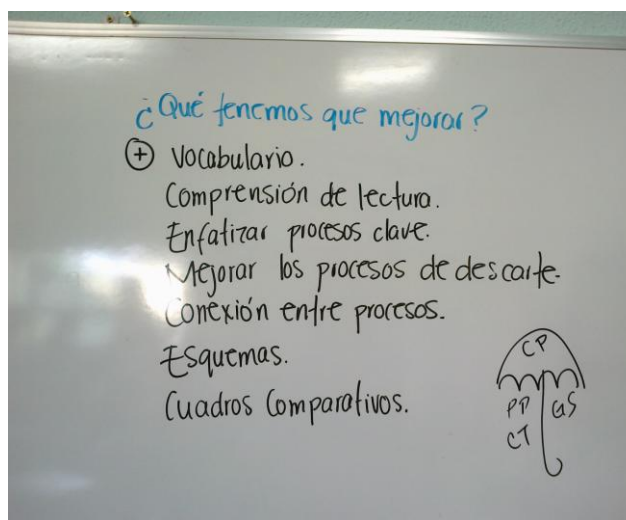 ¿Qué tenemos que mejorar?
⊕ Vocabulario.
Comprensión de lectura.
Enfatizar procesos clave.
Mejorar los procesos de descarte.
Conexión entre procesos.
Esquemas.
Cuadros Comparativos.
CP
PP GS
CT